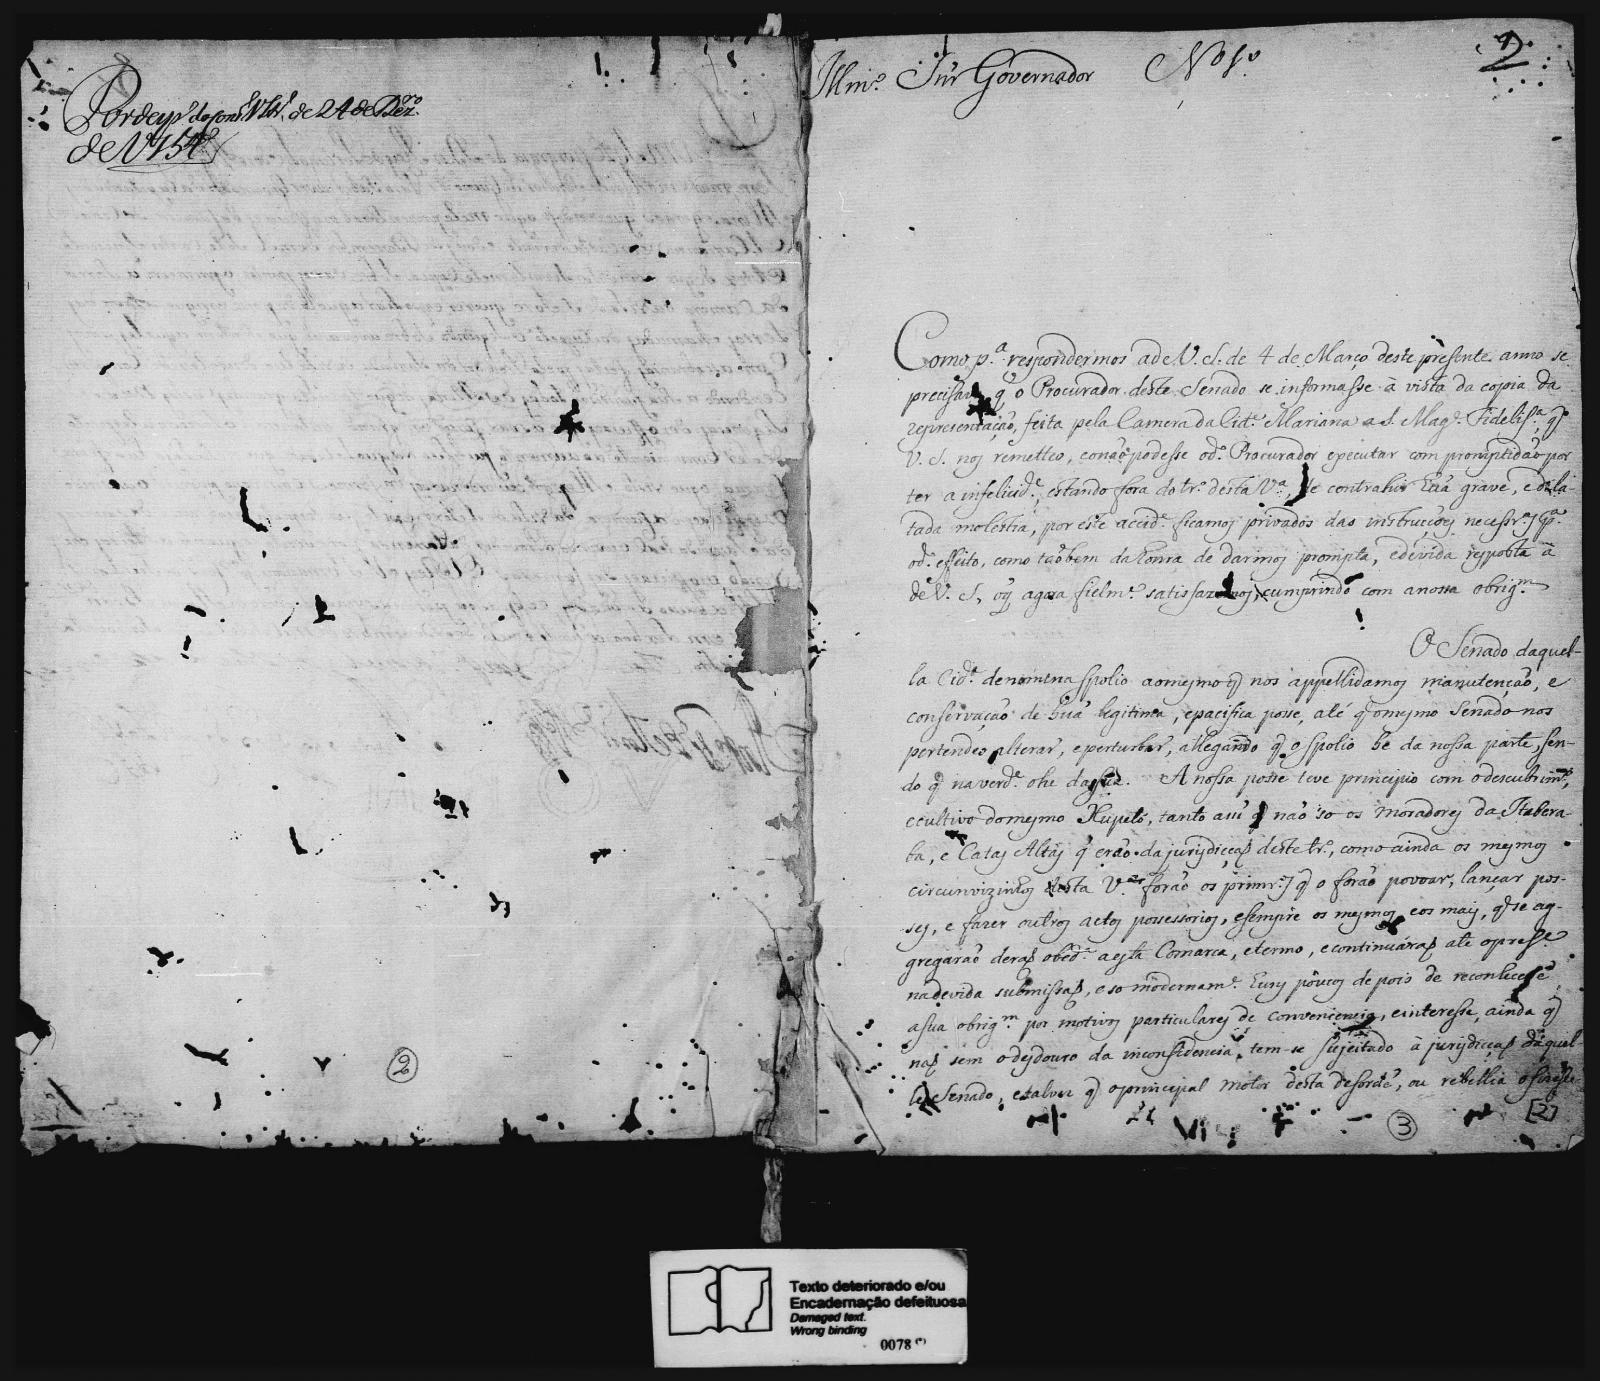 Por desp.º do Cons.º Ultr. de 24 de Dez.ro
de
2
Illm.º Snr Governador Nº 1º
Como p.ª respondermos a de V. S. de 4 de Março deste prezente anno se
precisava q̃ o Procurador deste Senado se informasse â vista da copia da
representação, feita pela Camera da Cid.e Mariana a S. Mag.e Fidelis.ª, q̃
V. S. nos remetteo, e onão podesse od.º Procurador executar com promptidão por
ter a infelicid.e, estando fora do tr.º desta V.ª, de contrahir huã grave, e dila-
tada molestia, por este accid.e ficamos privados das instrucçoẽs necessr.as p.ª
od.º effeito, como taõbem da honra de darmos prompta, e devida resposta â
de V. S., oq̃ agora fielm.e satisfazemos, cumprindo com a nossa obrig.m
O Senado daquel-
la Cid.e denomina spolio aomesmo q̃ nos appellidamos manutenção, e
conservação de huã legitima, e pacifica posse, até q̃ omesmo Senado nos
pertendeo alterar, e perturbar, allegando q̃ o spolio he da nossa parte, sen-
do q̃ na verd.e o he da sua. A nossa posse teve principio com o descubrim.to,
e cultivo do mesmo Xupetó, tanto assi q̃ não só os moradores da Itabera-
ba, e Catas Altas q̃ erão da jurisdicção deste tr.º, como ainda os mesmos
circunvizinhos desta V.ª forão os primr.os q̃ o forão povoar, lançar pos-
ses, e fazer outros actos possessorios, e sempre os mesmos, e os mais, q̃ se ag-
gregarão derão obed.ª a esta Comarca, e termo, e continuárão até o prese.
na devida submissão, e so módernam.e huns poucos depois de reconhecere
a sua obrig.m por motivos particulares de conveniencia, e interesse, ainda q̃
não sem o desdouro da inconfidencia, tem-se sujeitado á jurisdicção daquel-
le Senado, e talvez q̃ o principal motor desta desorde, ou rebellia
2
3
[2]
Texto deteriorado e/ou
Encadernação defeituosa
Damaged text.
Wrong binding
0078